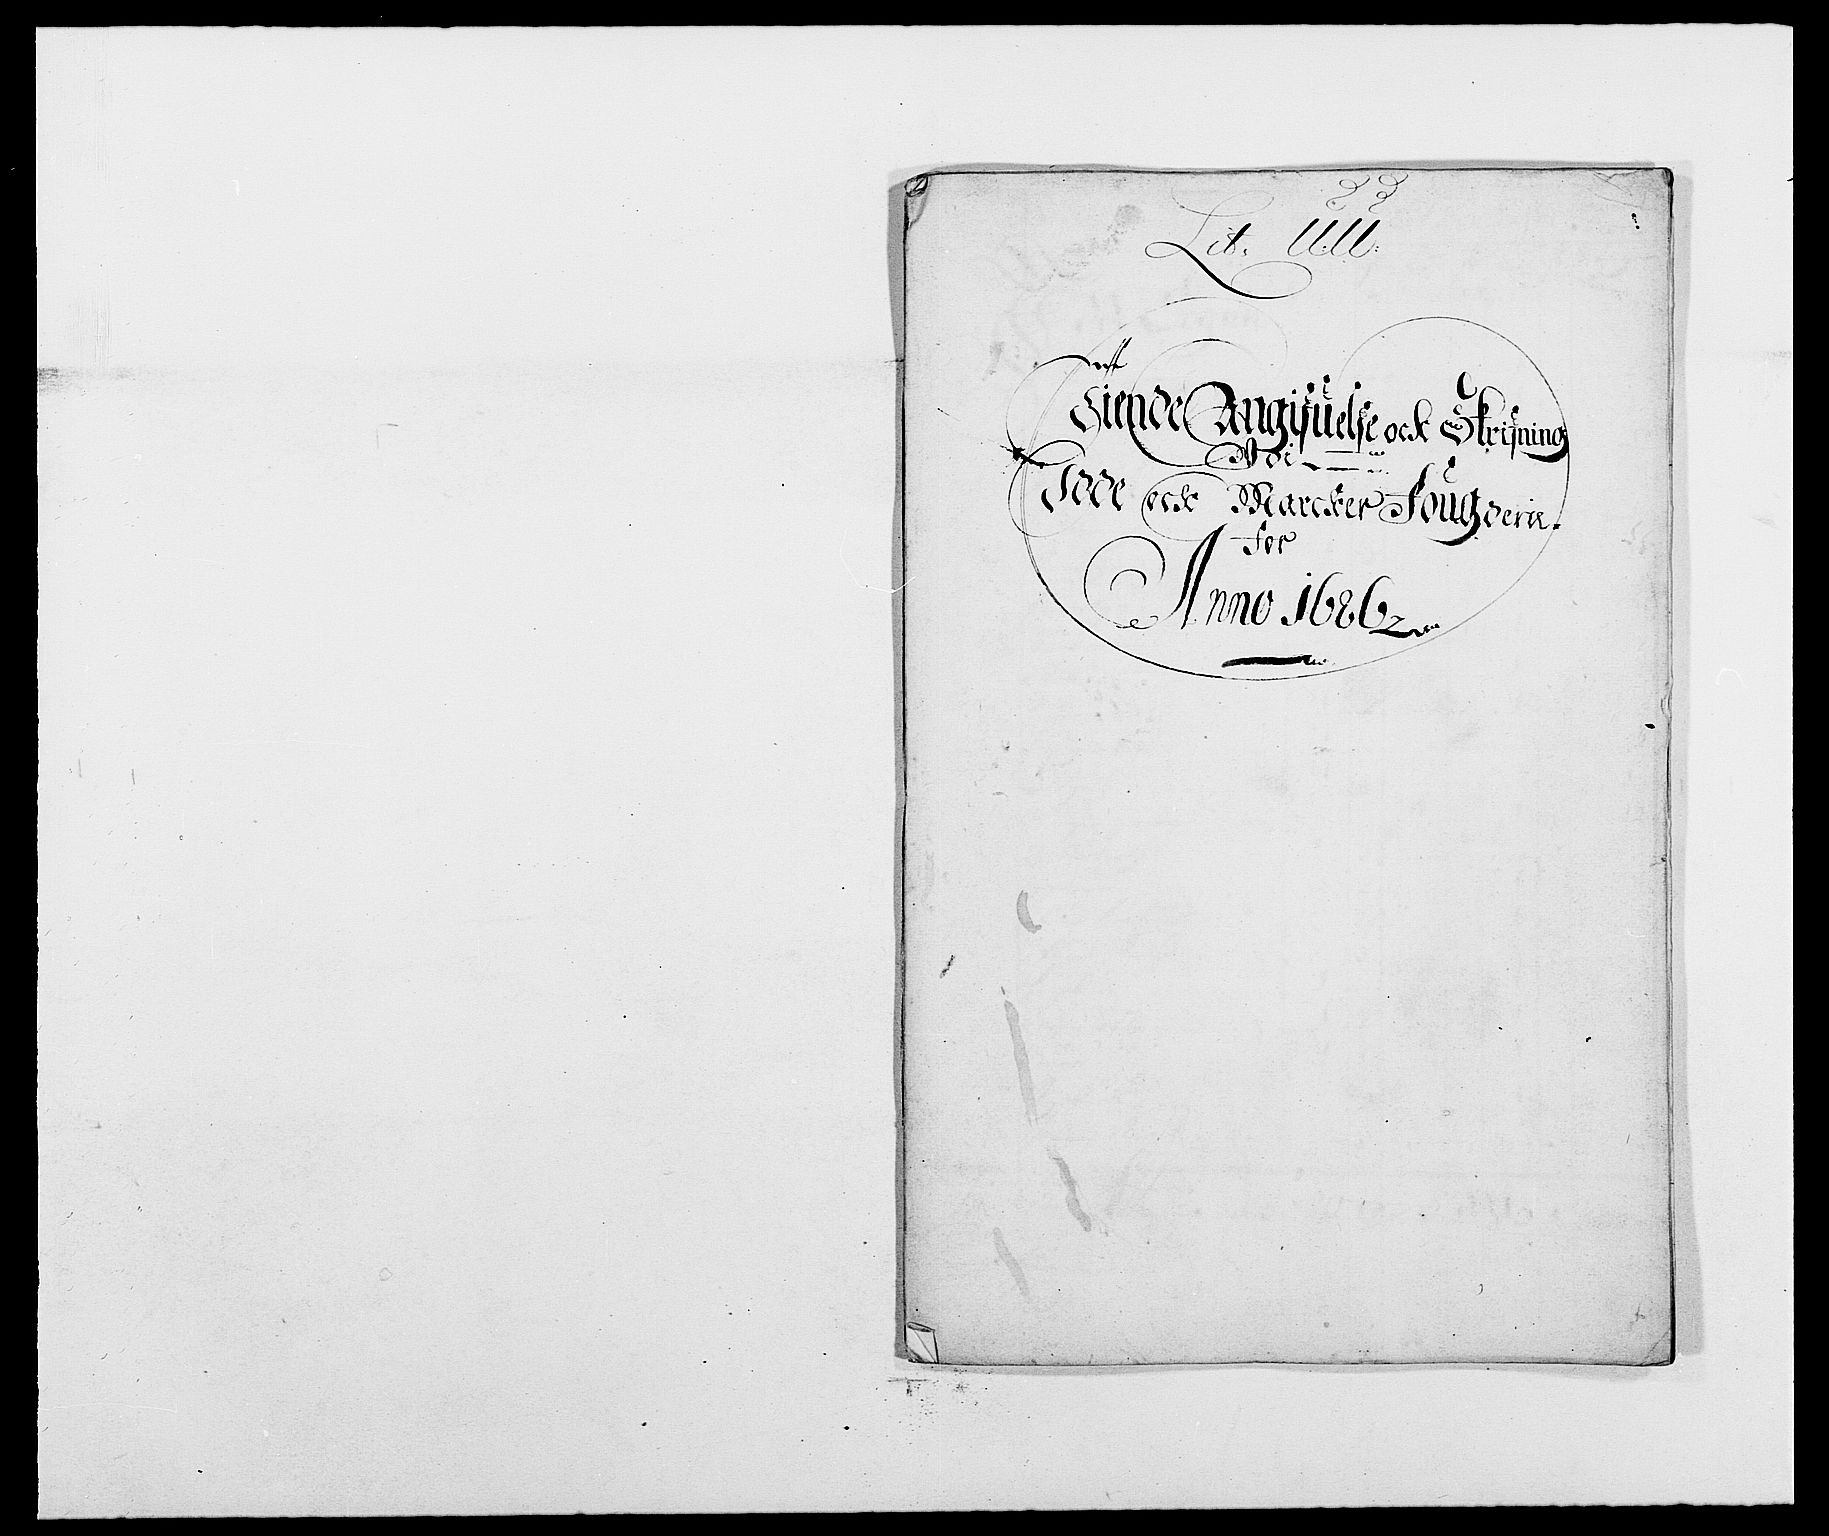 Lit. UU.
Tiende Angifuelse ock Skrifning
Udi
Idde ock Marcker Fougderie.
for
Anno 1686